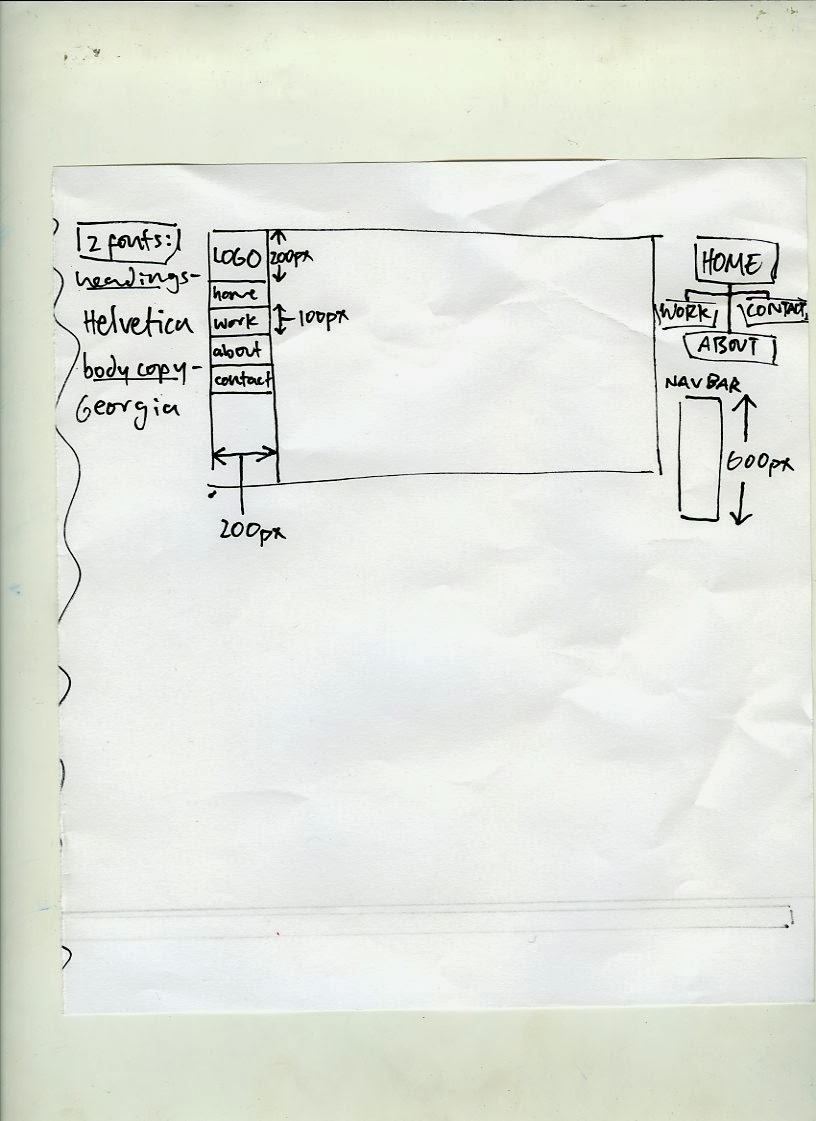 2 fonts:
headings-
Helvetica
body copy-
Georgia
LOGO
200px
home
work
100px
about
contact
200px
HOME
WORK
CONTACT
ABOUT
NAVBAR
600px